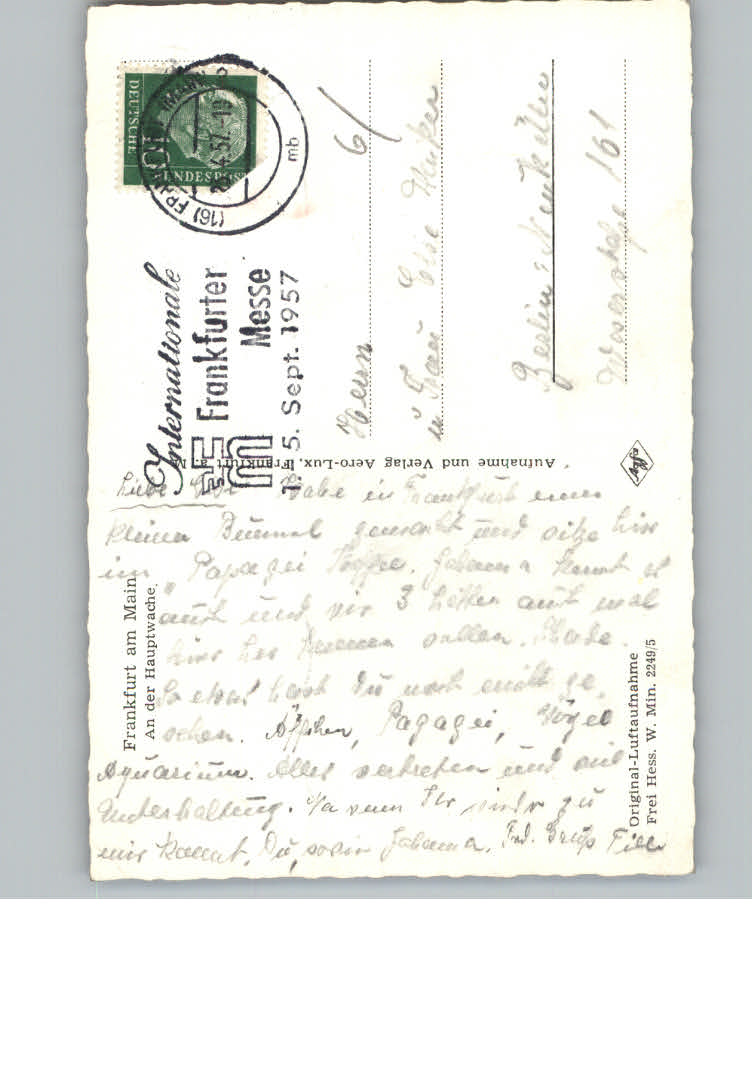 DEUTSCHE
BUNDESPOST
(16) FRANKFURT
.4.57.-1
mb
Internationale
Frankfurter
Messe
1.-5. Sept. 1957
6/
Herrn
u Frau Else
Berlin-Neukölln
Weserstraße 161
Aufnahme und Verlag Aero-Lux, Frankfurt a. M.
Agfa
Frankfurt am Main
An der Hauptwache
Original-Luftaufnahme
Frei Hess. W. Min. 2249/5
Liebe Habe in Frankfurt einen
kleinen Bummel gemacht und sitze hier
im "Papagei Kaffee. Johanna kennt es
auch und wir 3 hätten auch mal
hier her kommen sollen. Schade.
So etwas hast Du noch nicht ge-
sehen. Äffchen, Papagei, Vögel
Aquarium. Alles vertreten und viel
Unterhaltung. Na wenn Ihr wieder zu
mir kommt, Du, sowie Johanna.